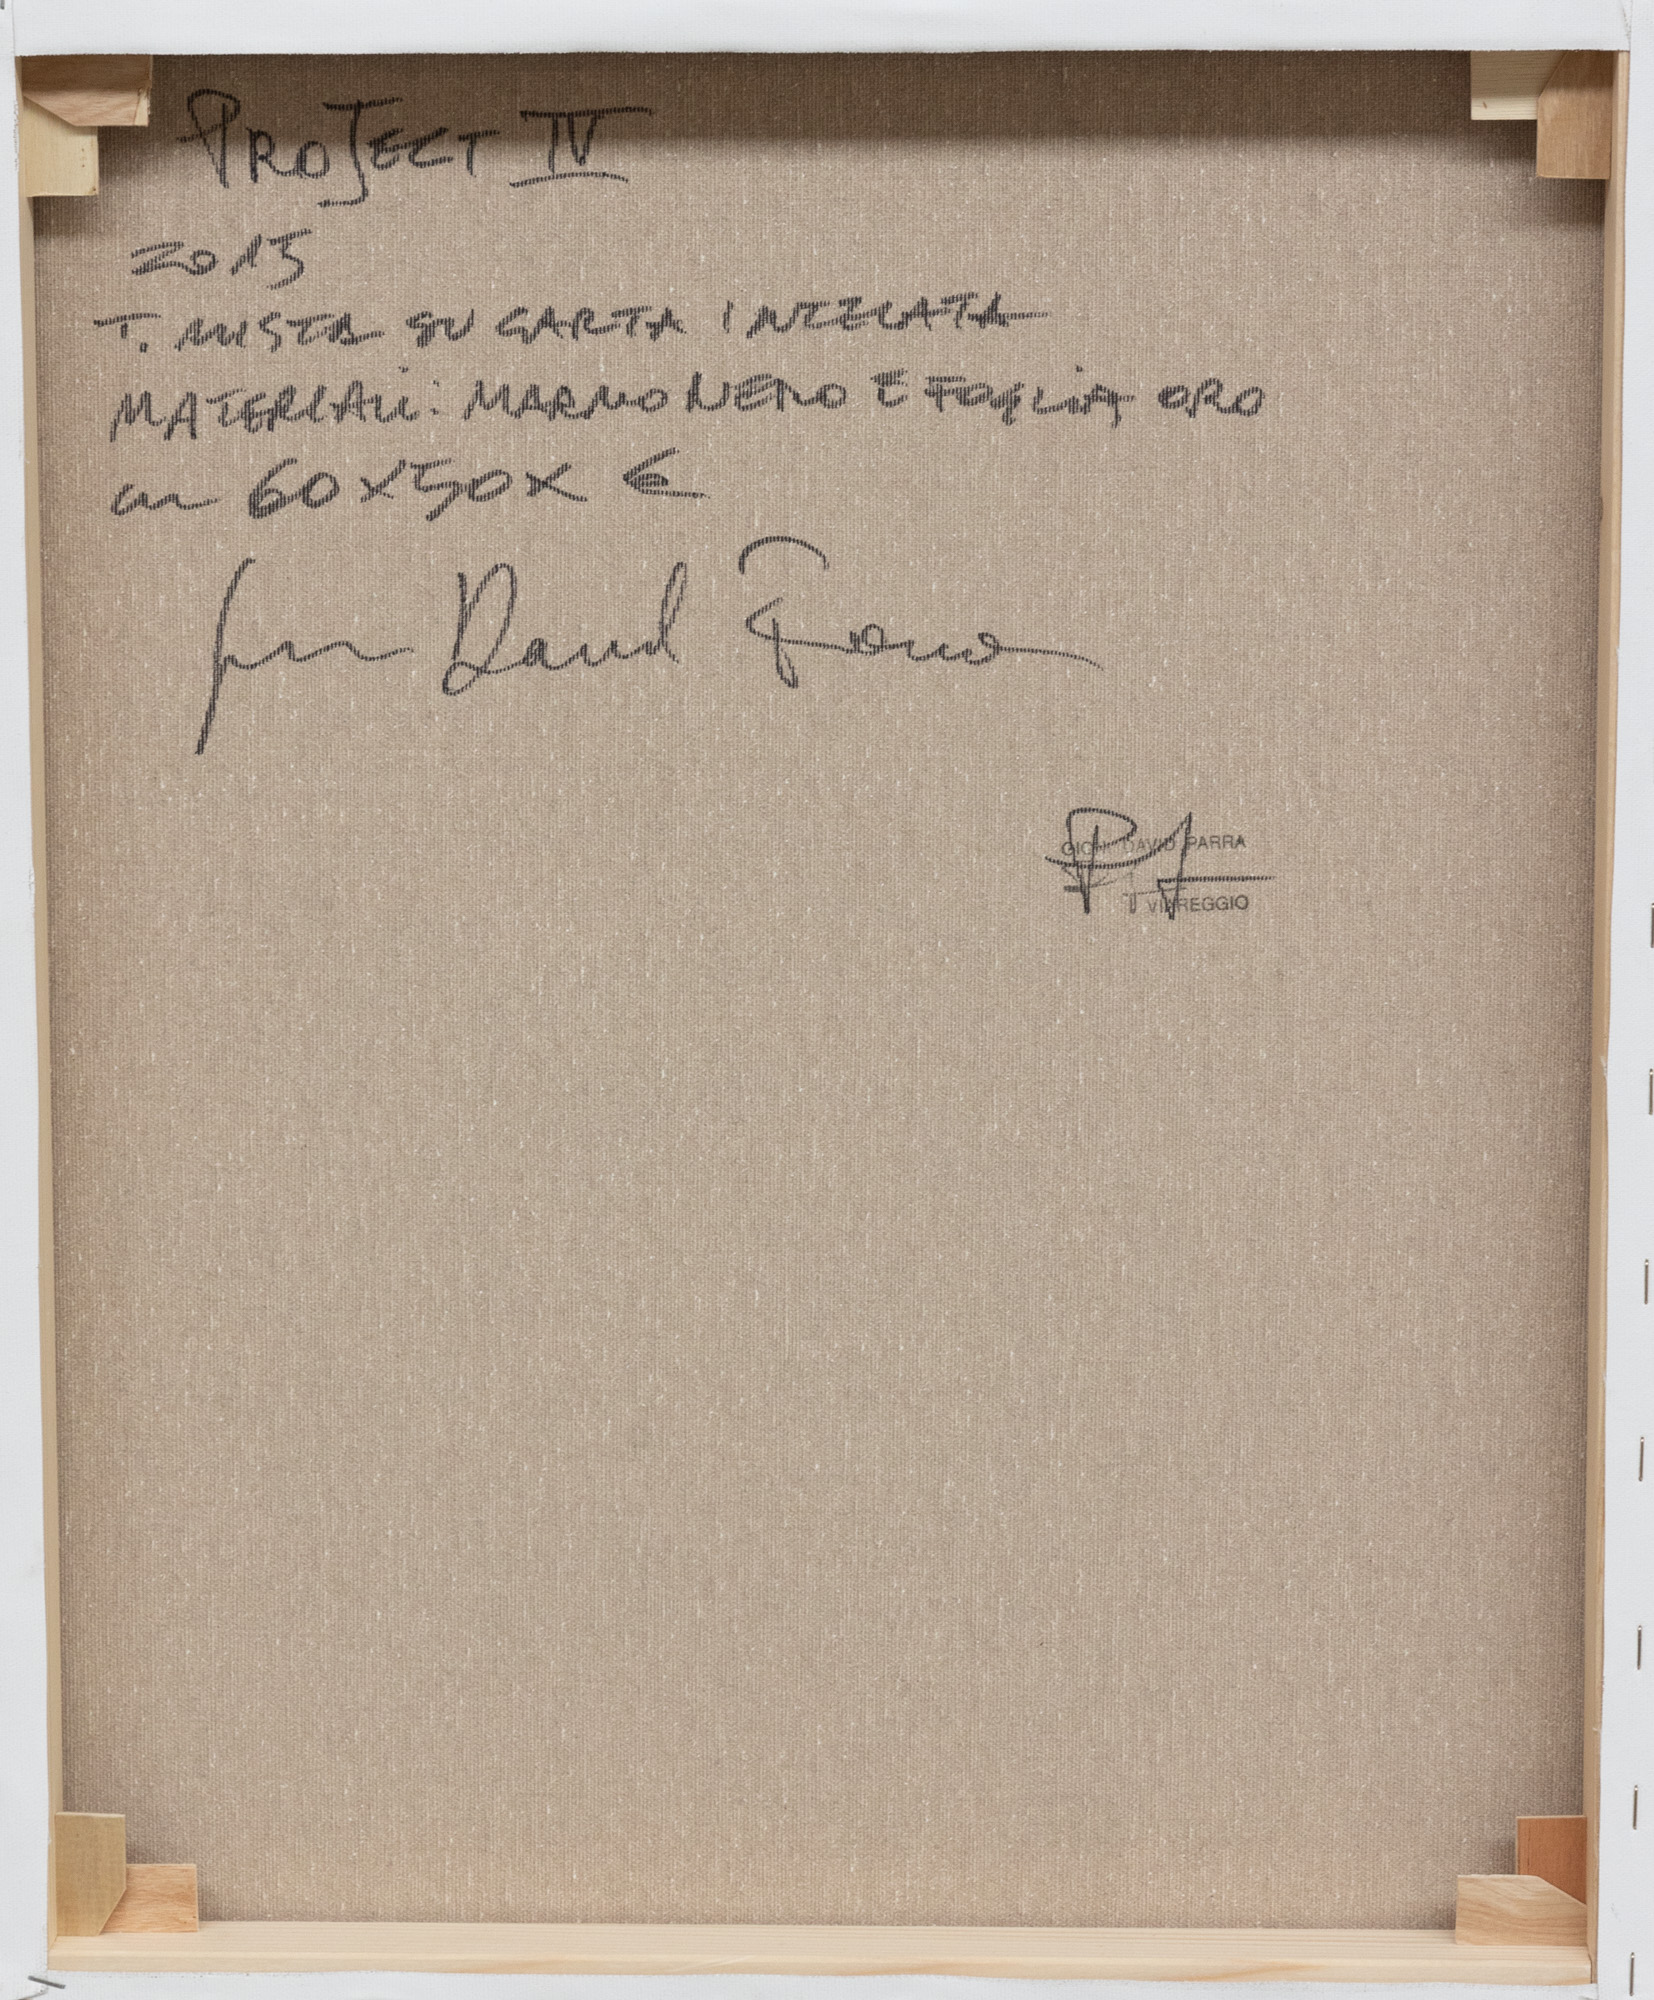 PROJECT IV
2015
T. MISTA SU CARTA INTELATA
MATERIALI: MARMO NERO E FOGLIA ORO
cm 60x50x 6
David
DAVID PARRA
VIAREGGIO